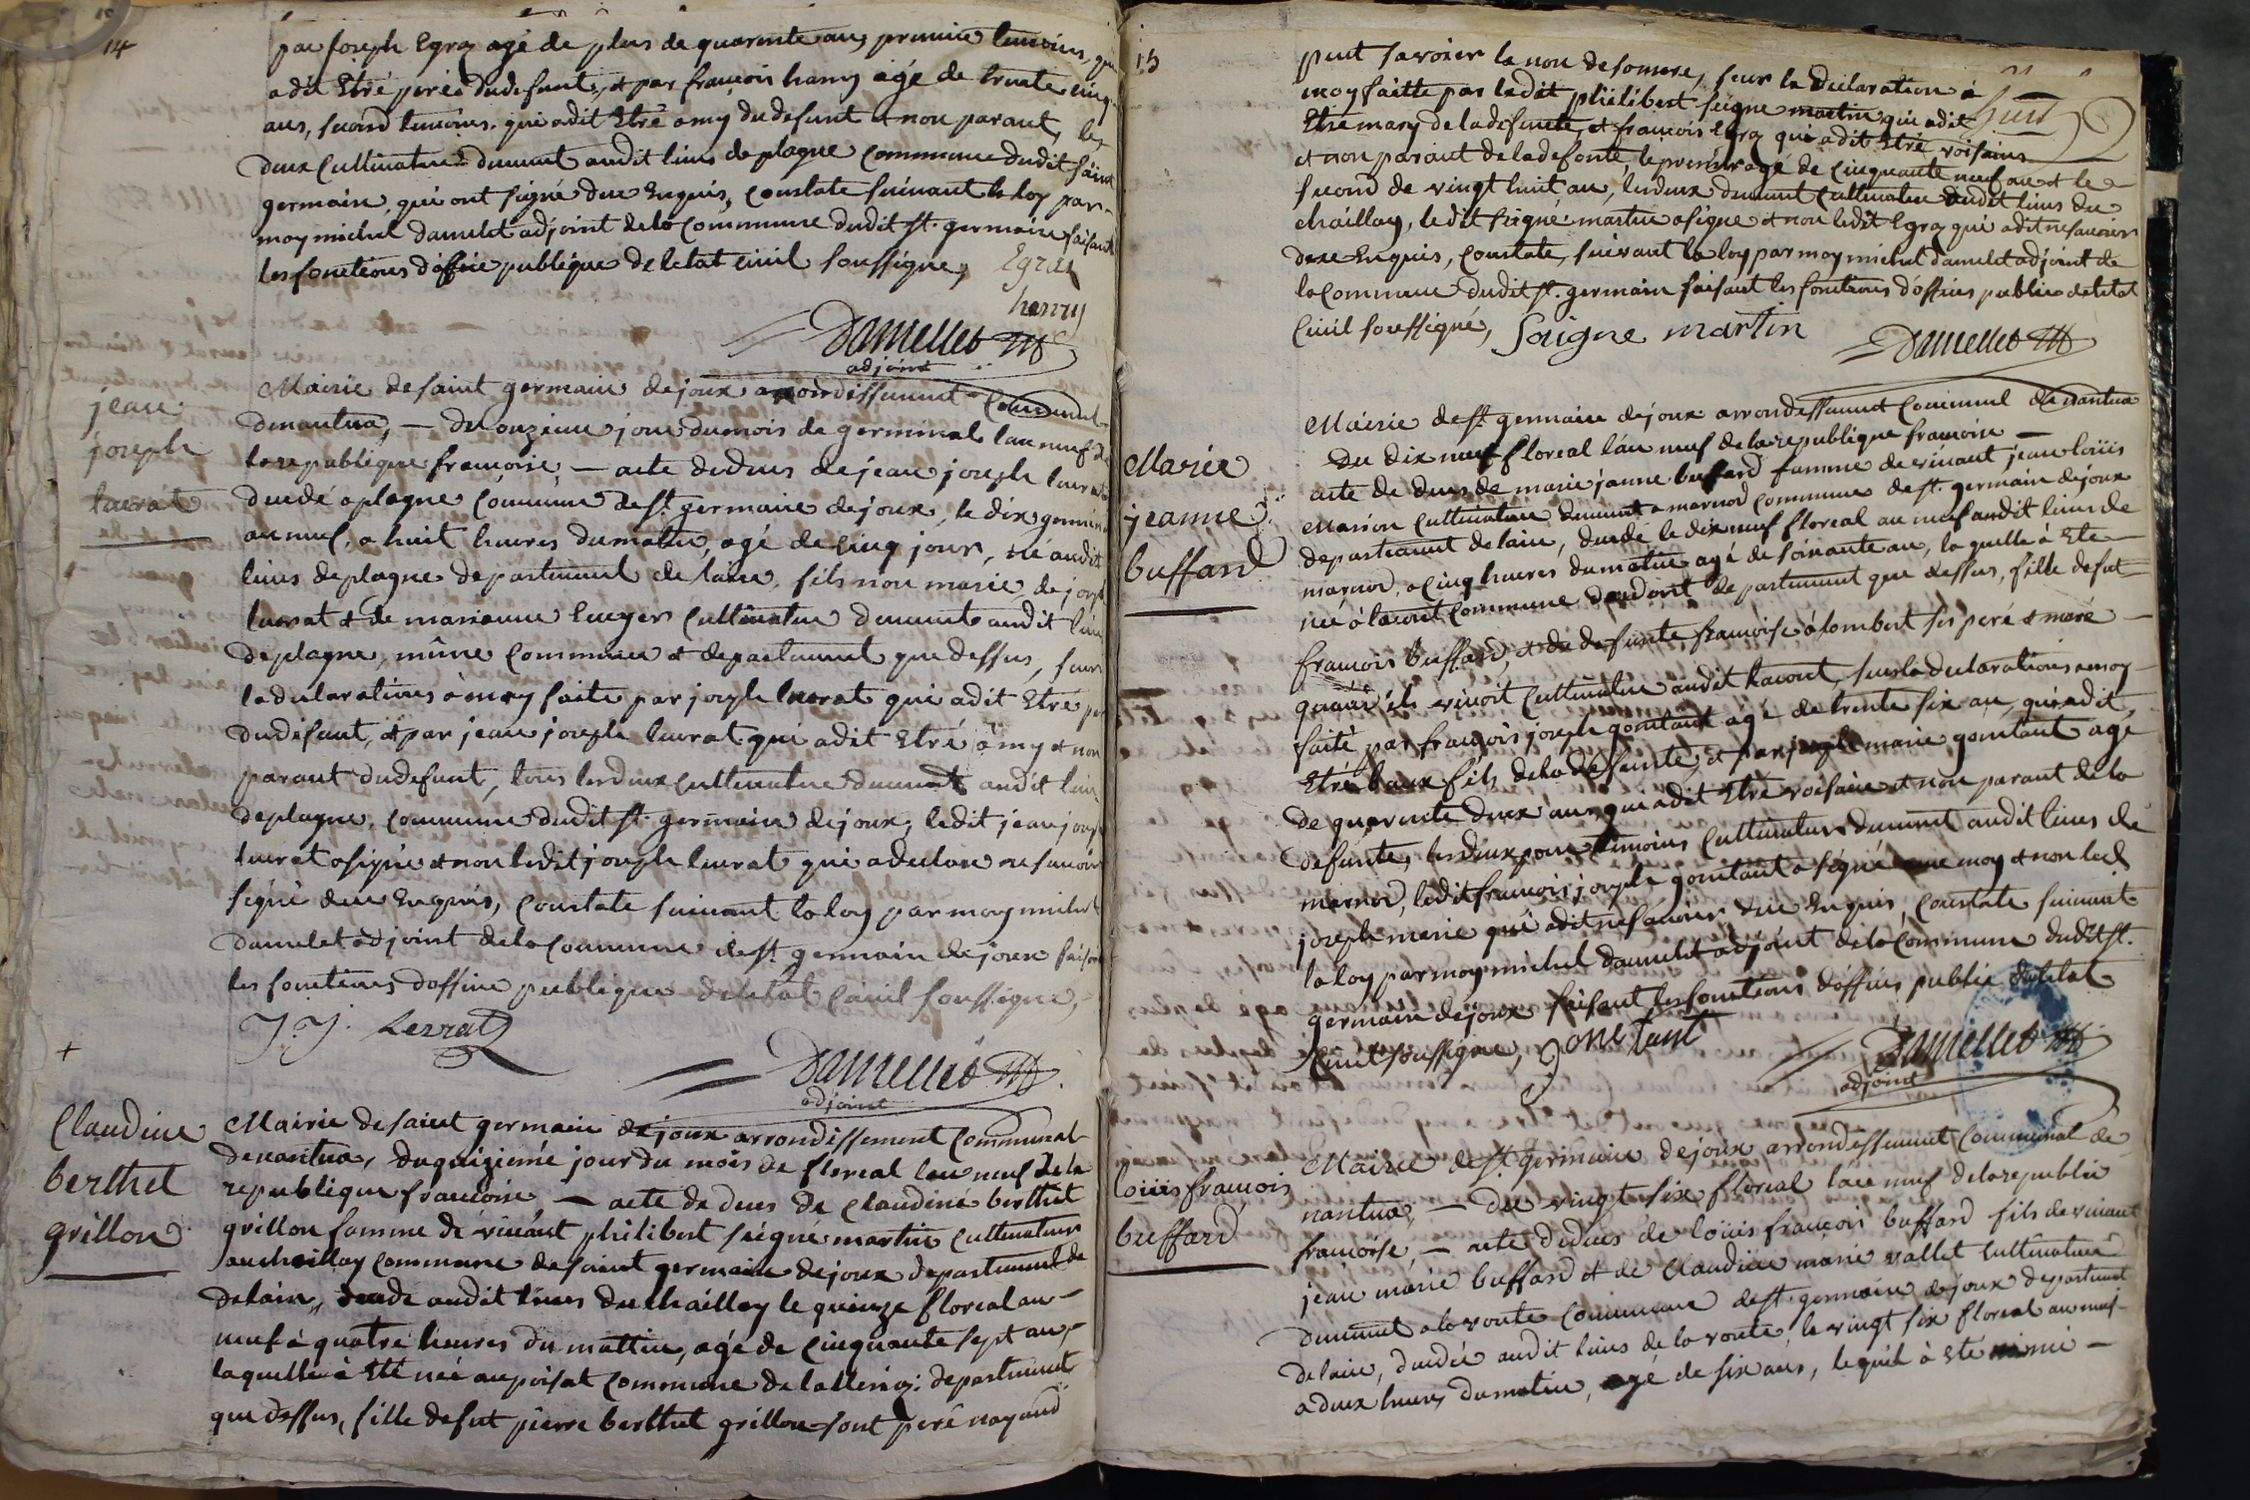 14
par joseph Egraz agé de plus de quarente ans premier temoins, qui
a dit Etré peré dudefunt, et par francois hanry agé de trente cinq
ans, second temoins. qui adit Etré amy dudefunt et non parant, les
deux Cultivateur demeurt audit lieus de plagne Commune dudit saint
germain, qui ont signé due Enquis, Constate suivant la loy par
moy michel damelet adjoint dela Commune dudit st. germain faisant
les fonctions d'officié publique deletat civil soussigne,
Egraz
henry
Damellet
adjoint
jean
joseph
luvrat
Mairie de saint germain dejoux arrondissement Communal
denantua, — du onzieme jour dumois de germinal lan neuf de
la republique francoise — acte dedues de jean joseph luvrat
duedé a plagne Commune dest. germain dejoux, le dix germinal
an neuf, a huit heures dumatin, agé de Cinq jour, né audit
lieus deplagne departement de lain, fils non marie de joseph
luvrat et de marianne Cultivateur demeurt audit lieu
deplagne, même Commune et departement que dessus, sur
la declarations à moy faite par joseph luvrat qui adit Etre per
dudefunt, et par jean joseph luvrat qui adit Etré àmy et non
parant dudefunt, tous lesdeux Cultivateur demeurt audit lieu
deplagne, Commune dudit st. germain dejoux, ledit jean joseph
luvrat asigné et non ledit joseph luvrat qui adeclare ne savoir
signé due Enquis, Constate suivant la loy par moy michel
damelet adjoint dela Commune dest. germain dejoux faisant
les fonctions dofficié publique deletat Civil soussigne,
J. J. Levrat
Damellet
adjoint
Claudine
berthet
grillon
Mairie de saint germain dejoux arrondissement Communal
denantua, duquizieme jour du mois de floreal lan neuf de la
republique francoise — acte de dues de Claudine berthet
grillon famme dé vivant philibert seigne martin Cultivateur
auchaillay Commune de saint germain dejoux departement de
delain, duedé audit lieus du chailley le quinze floreal an
neuf à quatré heures du mattin, agé de Cinquante sept ans,
laquelle à Eté née aupoisat Commune de departement
que dessus, fille defut pierre berthet grillon sont peré nayand
15
put savoier la non desamere, sur la declaration à
moy faitte par ledit philibert seigne martin qui adit
Etre mary deladefunte, et francois Egraz qui adit Etré voisains
et non parant deladefonte, le premier agé de Cinquante neuf an et le
second de vingt huit an, lesdeux demeurt Cultivateur audit lieus du
chaillay, ledit seigne martin asigne et non ledit Egraz qui adit nesavoir
dexe Enquis, Constate, suivant la loy par moy michel damelet adjoint de
la Commune dudit st. germain faisant les fonctions d'officies public deletat
Civil soussigné,
Saigne martin
Damellet
huit
Marie
jeanne
buffard
Mairie dest. germain dejoux arrondissement Communal denantua
du dix neuf floreal lan neuf de la republique francoise —
acte de dues de marie jeanne buffard famme de vivant jean loüis
Marion Cultivateur demeurt a marnod Commune dest. germain dejoux
departement de lain, duedé le dix neuf floreal an neuf audit lieus de
marnod, a Cinq heures dumatin agé de soixante an, laquelle à Eté
née à lacout Commune departement que dessus, fille defut
francois buffard, et de defunte francoise àlombert ses peré et meré
quand ils vivoit Cultivateur audit lacout, sur la declarations amoy
faité par francois joseph goutant agé de trente six an, qui adit
Etré baux fils dela defunte, et par joseph marie goutant agé
de quarente deux ans qui adit Etré voisain et non parant dela
defunte, lesdeux pour temoins Cultivateur demeurt audit lieus de
marnod, ledit francois joseph goutant a signé avec moy et non led
joseph marie qui adit nesavoier due Enquis, Constate suivant
la loy par moy michel damelet adjoint dela Commune dudit st.
germain dejoux faisant les fonctions dofficies public deletat
Civil soussigne,
gonetant
Damellet
adjoint
loüis francois
buffard
Mairie dest. germain dejoux arrondessement Communal de
nantua, — du vingt six floreal lan neuf delarepublic
francoise, — acte dedues de loüis francois buffard fils de vivant
jean marie buffard et de Claudine marie vallet Cultivateur
demeurt a la voute Commune dest. germain dejoux departement
de lain, duedé audit lieus de la voute, le vingt six floreal an neuf
a deux heures dumatin, agé de six ans, lequel à Eté né